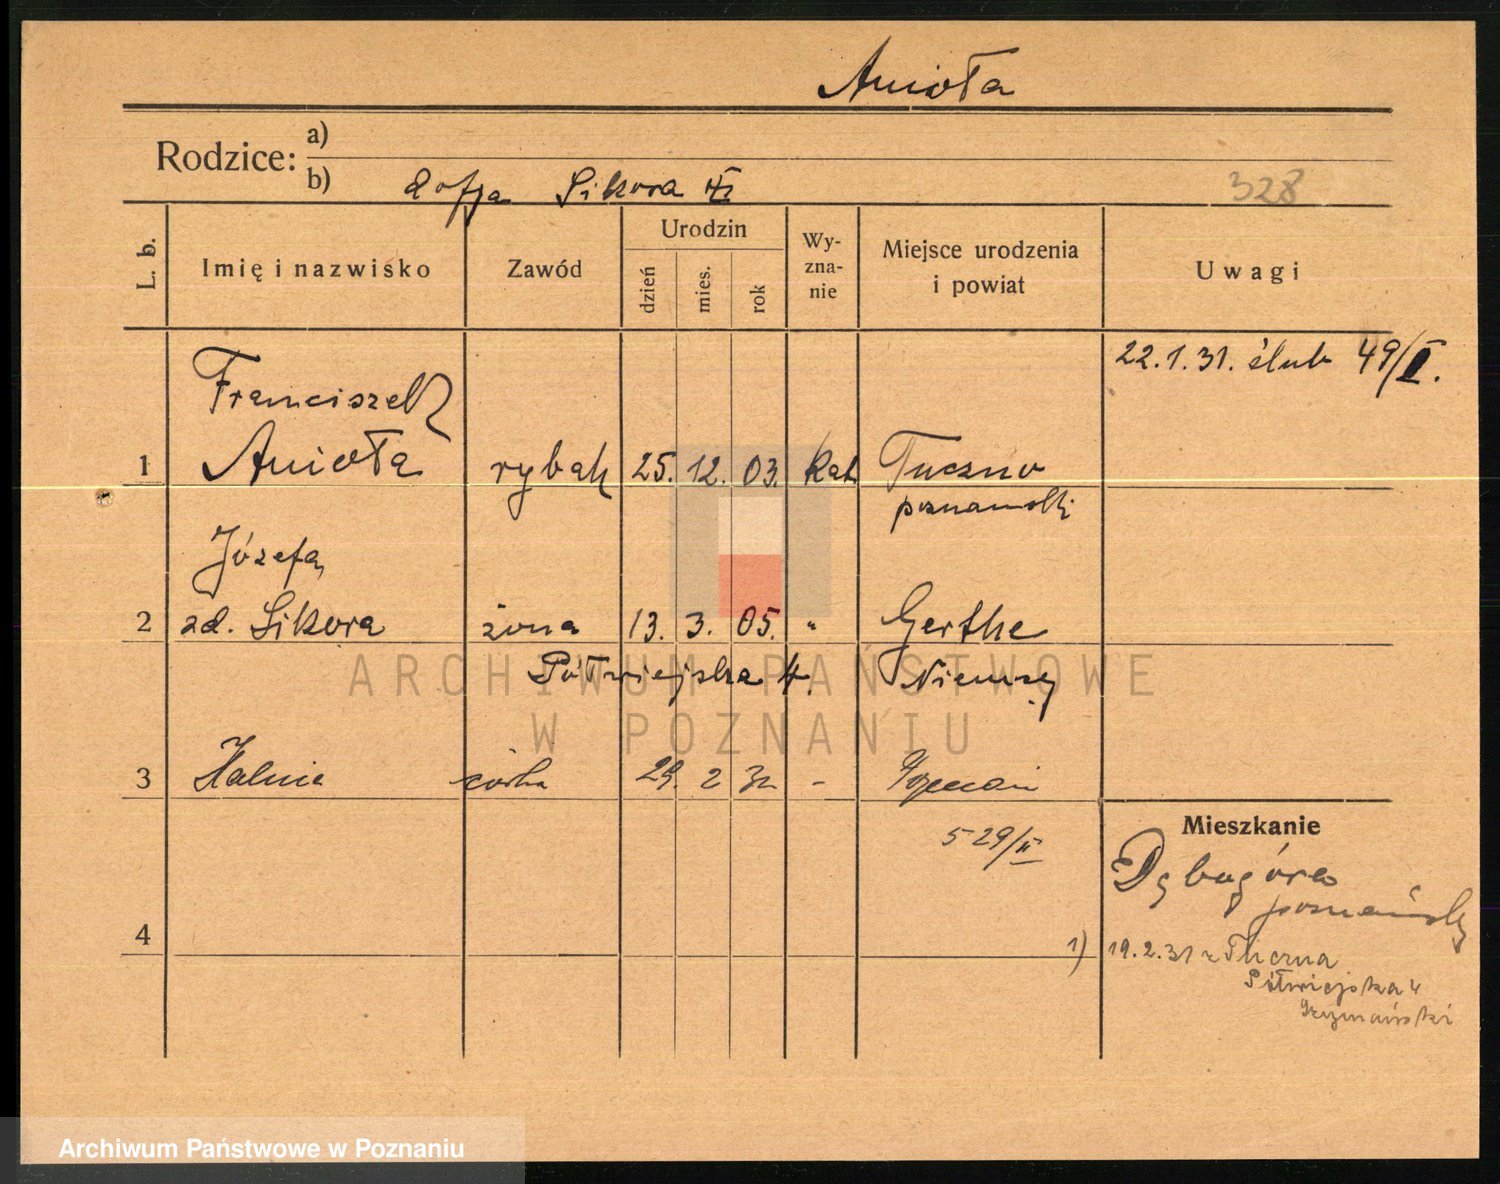 Anioła
Rodzice: a)
b) Zofja Sikora
328
L. b.
Imię i nazwisko
Zawód
Urodzin
dzień
mies.
rok
Wy-
zna-
nie
Miejsce urodzenia
i powiat
Uwagi
22.1.31. ślub 49/II.
Franciszek
1 Anioła rybak 25. 12. 03. kat Tuczno
poznański
Józefa
2 zd. Sikora żona 13. 3. 05. " Gerthe
Półwiejska 4. Niemcy
3 Halina córka 29. 2 32 - Poznań
529/II
Mieszkanie
Dębogóra
poznański
4
1) 19.2.31 z Tuczna
Półwiejska 4
ARCHIWUM PAŃSTWOWE
W POZNANIU
Archiwum Państwowe w Poznaniu